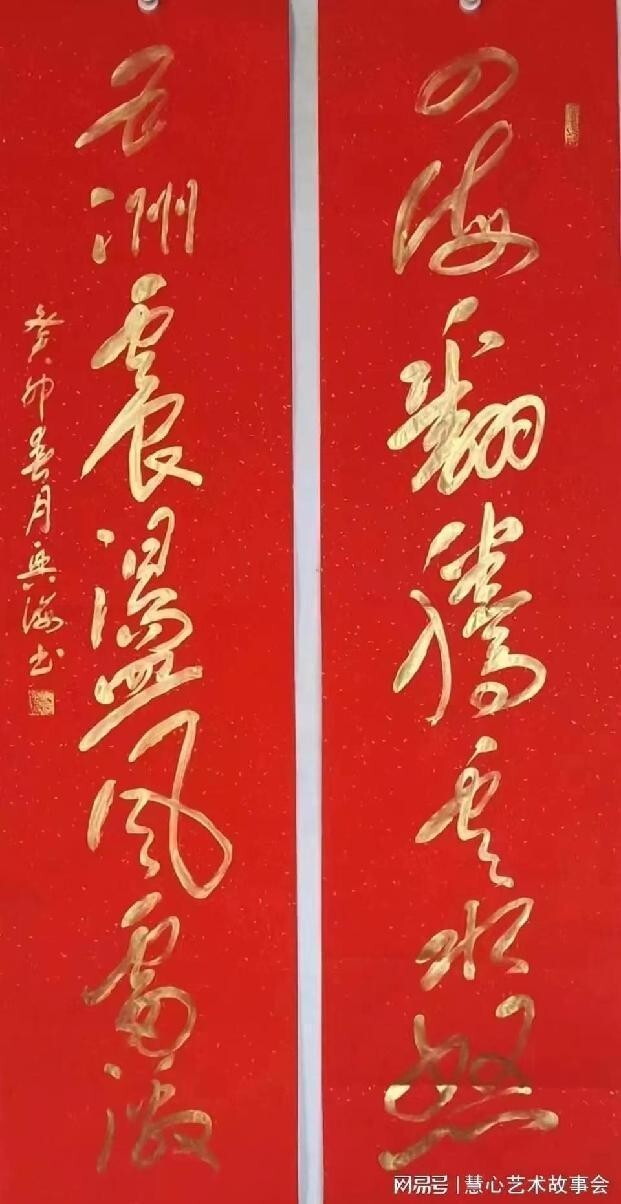 四海翻腾云水怒
五洲震盪风雷激
癸卯春月兴海书
网易号 | 慧心艺术故事会